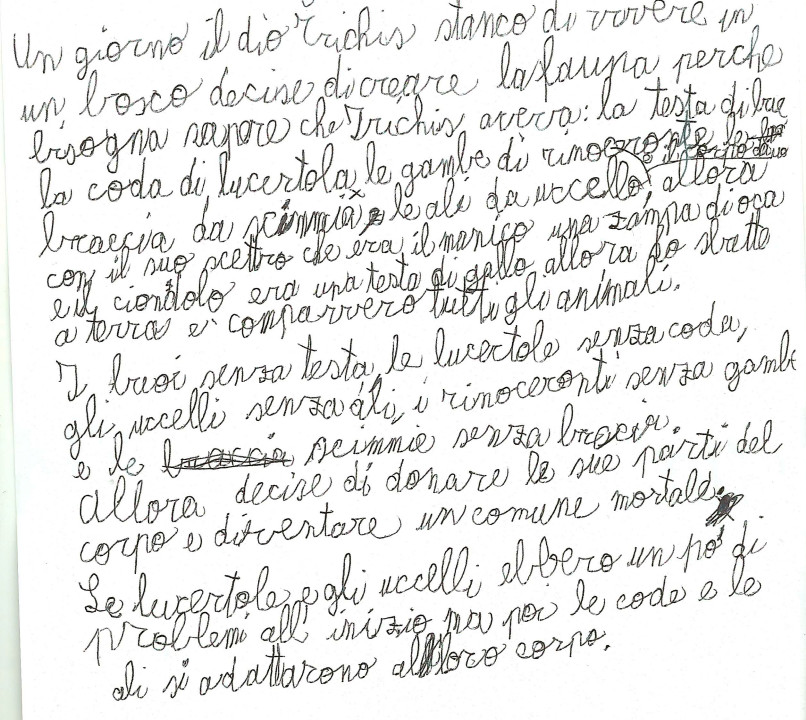 Un giorno il dio Trichis stanco di vivere in
un bosco decise di creare la fauna perche
bisogna sapere che Trichis aveva: la testa di bue
la coda di lucertola, le gambe di rinoceronte
braccia da scimmia, e le ali da uccello, allora
con il suo scettro che era il manico una zampa di oca
e il ciondolo era una testa di gallo allora lo sbatte
a terra e comparvero tutti gli animali.
I buoi senza testa, le lucertole senza coda,
gli uccelli senza ali, i rinoceronti senza gambe
e le scimmie senza braccia.
Allora decise di donare le sue parti del
corpo e diventare un comune mortale.
Le lucertole e gli uccelli ebbero un po' di
problemi all'inizio ma poi le code e le
ali si adattarono al loro corpo.